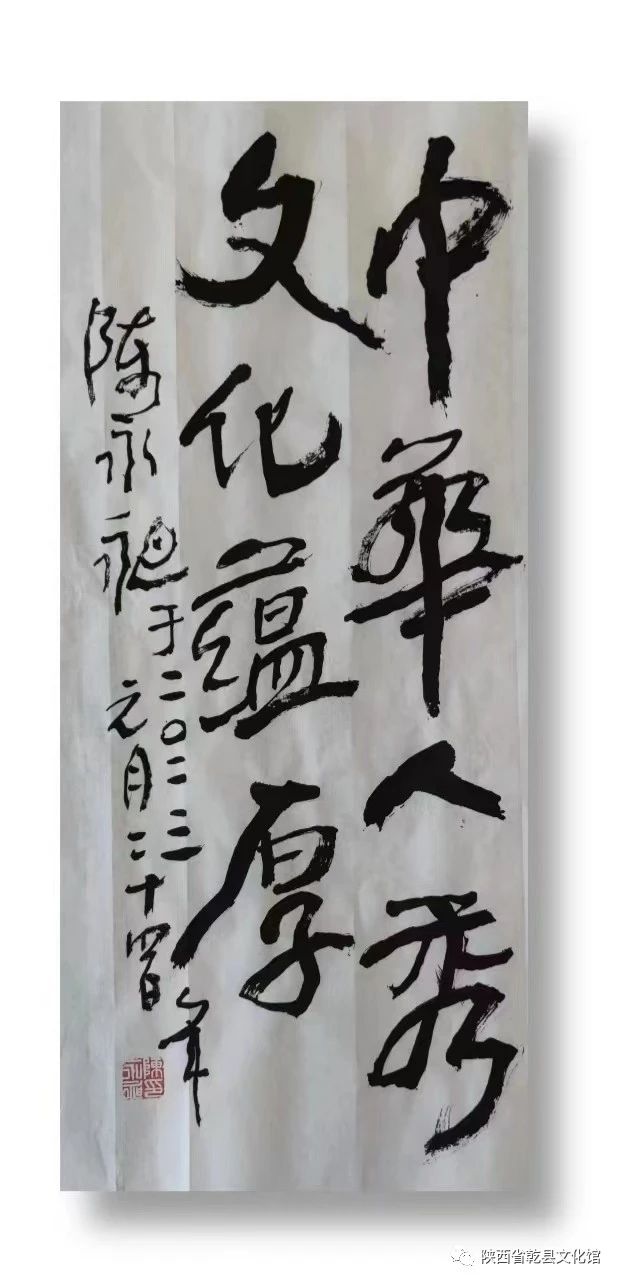 中華人秀
文化蕴厚
陈永昶于二〇二三年
元月二十四日
陕西省乾县文化馆